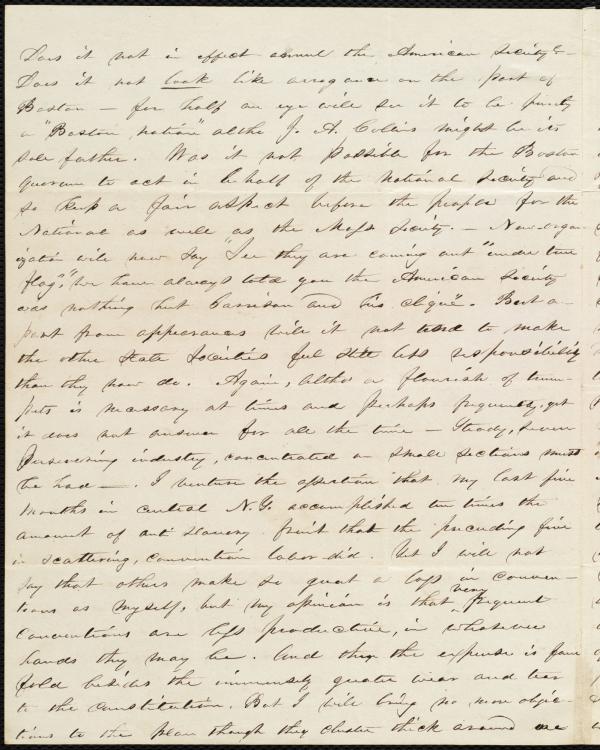 Does it not in effect annul the American Society &-
Does it not look like arrogance on the part of
Boston — for half an eye will see it to be purely
a "Boston notion" altho J. A. Collins might be its
sole father. Was it not possible for the Boston
quorum to act in behalf of the national society and
so keep a fair aspect before the people for the
National as well as the Mass Society. — New-organ-
ization will now say "See they are coming out "under true
flag", We have always told you the American Society
was nothing but Garrison and his clique". But a-
part from appearances will it not tend to make
the other State Societies feel still less responsibility
than they now do. Again, altho a flourish of trum-
pets is necessary at times and perhaps frequently, yet
it does not answer for all the time — Steady, severe
Persevering industry, concentrated on small sections must
be had —. I venture the assertion that my last five
months in central N.Y. accomplished ten times the
amount of anti slavery fruit that the preceding five
in scattering, convention labor did. Yet I will not
say that others make so great a loss in conven-
tions as myself, but my opinion is that very frequent
Conventions are less productive, in whatever
hands they may be. And then the expense is four
fold besides the immensely greater wear and tear
to the constitution. But I will bring no more objec-
tions to the plan though they cluster thick around me